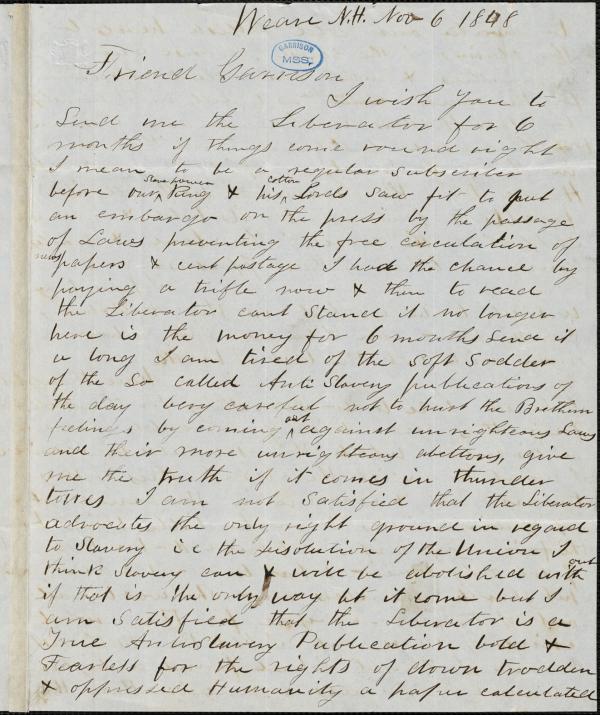 Weare N.H. Nov 6 1848
GARRISON
MSS.
Friend Garrison
I wish you to
Send me the Liberator for 6
months if things come round right
I mean to be a regular Subscriber
before our Slave power King & his cotton Lords saw fit to put
an embargo on the press by the passage
of Laws preventing the free circulation of
news papers & cent postage I had the chance by
paying a trifle now & then to read
the Liberator cant Stand it no longer
here is the money for 6 months Send it
a long I am tired of the Soft Sodder
of the So called Anti Slavery publications of
the day very careful not to hurt the Brethern
feelings by coming out against unrighteous Laws
and their more unrighteous abettors, give
me the truth if it comes in thunder
tones I am not Satisfied that the Liberator
advocates the only right ground in regard
to Slavery i e the Disolution of the Union I
think Slavery can & will be abolished with out
if that is the only way let it come but I
am Satisfied that the Liberator is a
True AntiSlavery Publication bold &
Fearless for the rights of down trodden
& oppressed Humanity a paper calculated